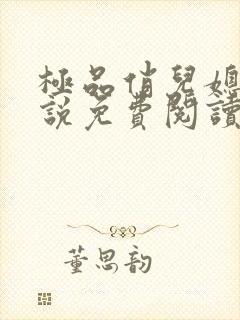 極品俏兒媳
說免費閱讀
董思韵